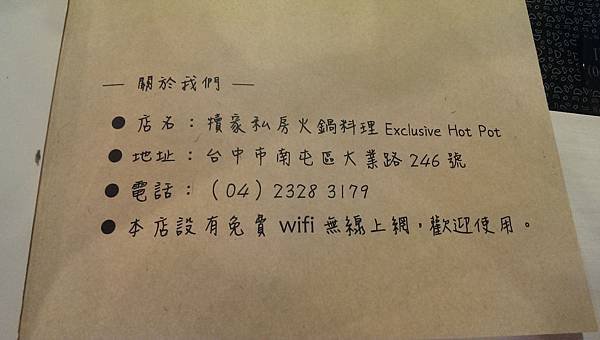 — 關於我們 —
● 店名：犢豪私房火鍋料理 Exclusive Hot Pot
● 地址：台中市南屯區大業路 246 號
● 電話：（04）2328 3179
● 本店設有免費 wifi 無線上網，歡迎使用。